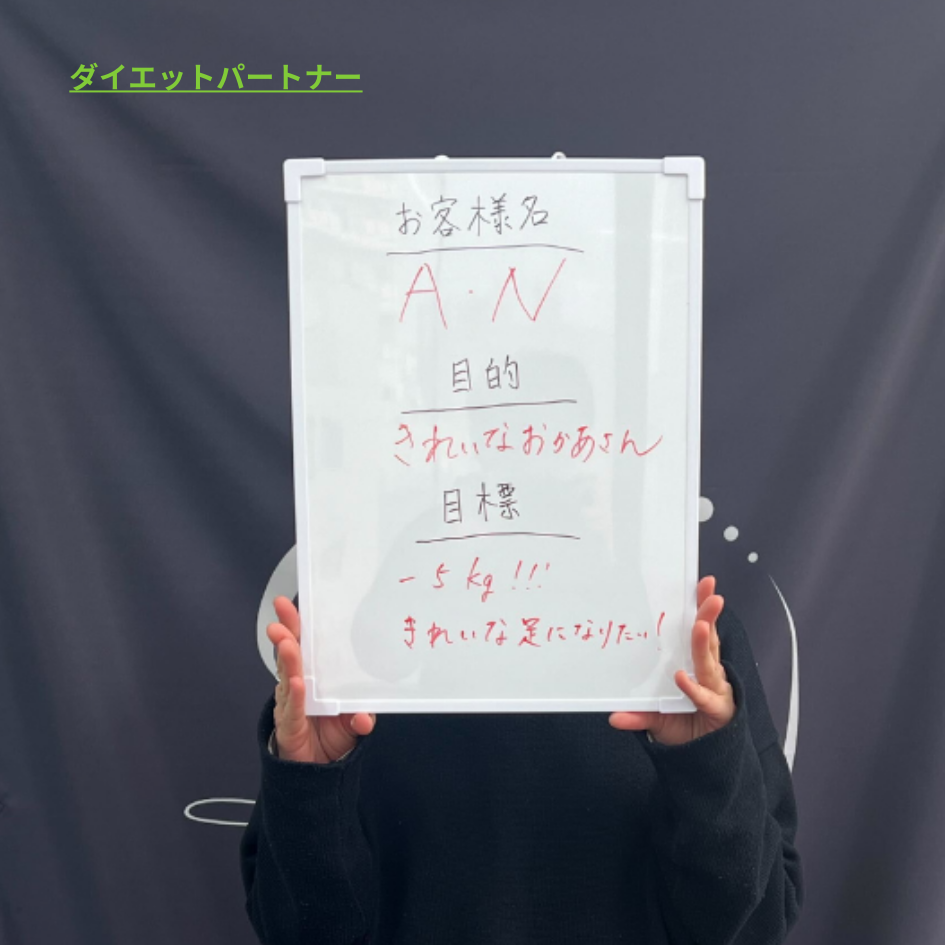 ダイエットパートナー
お客様名
A・N
目的
きれいなおかあさん
目標
-5kg!!!
きれいな足になりたい!